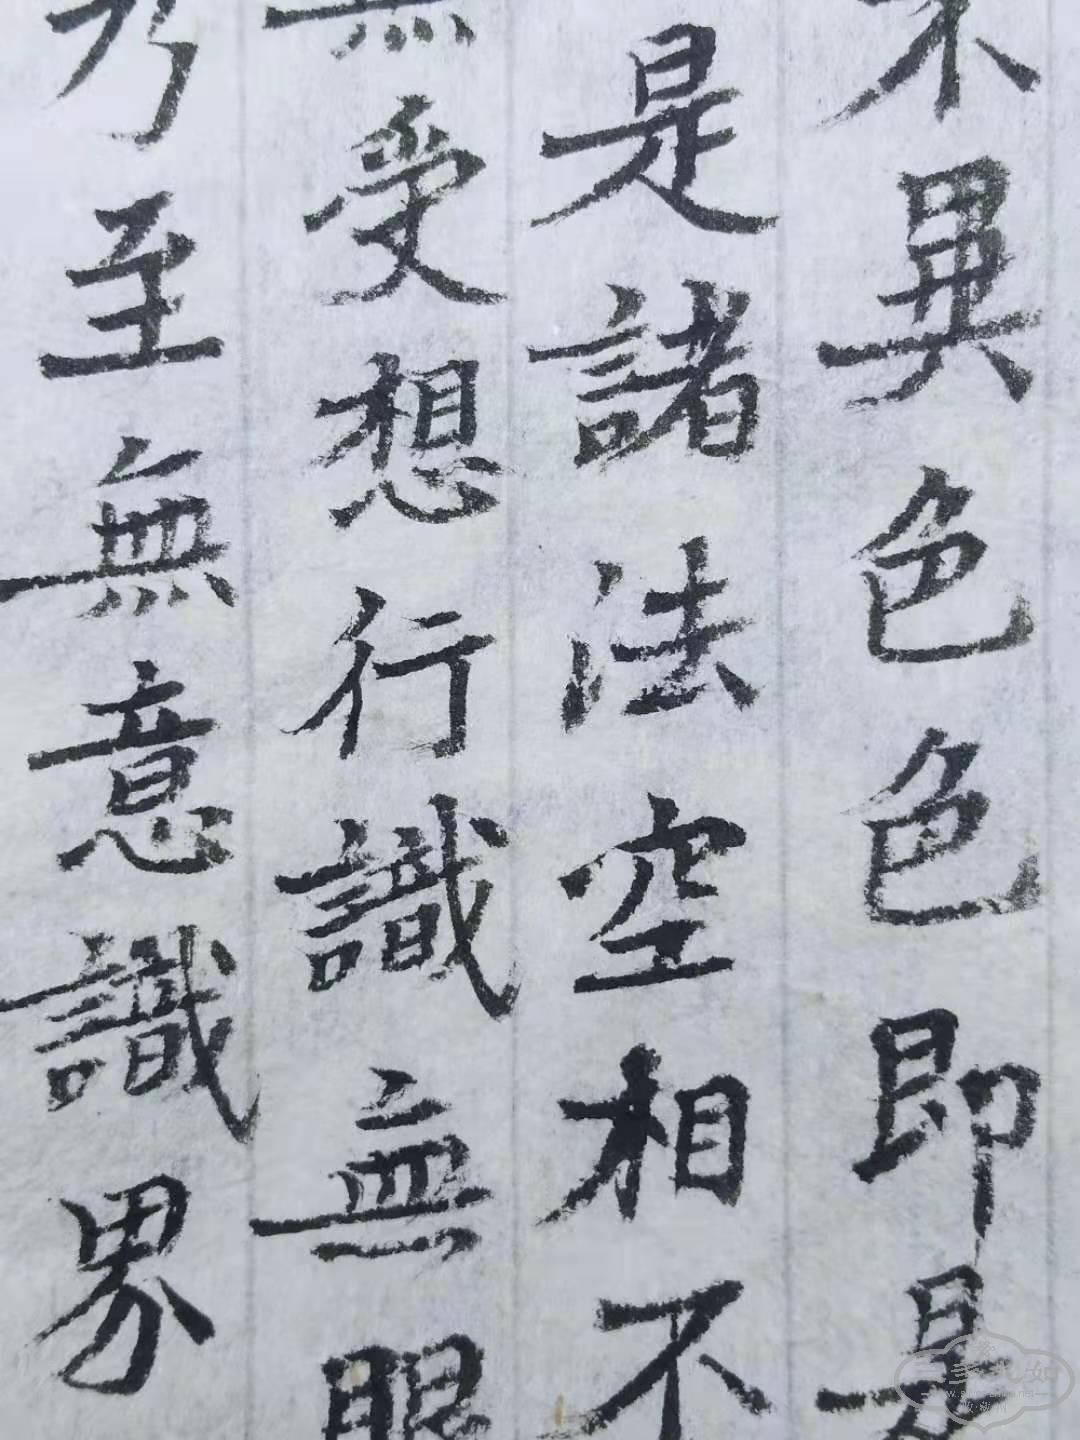 不異色色即是
是諸法空相不
無受想行識無眼
乃至無意識界